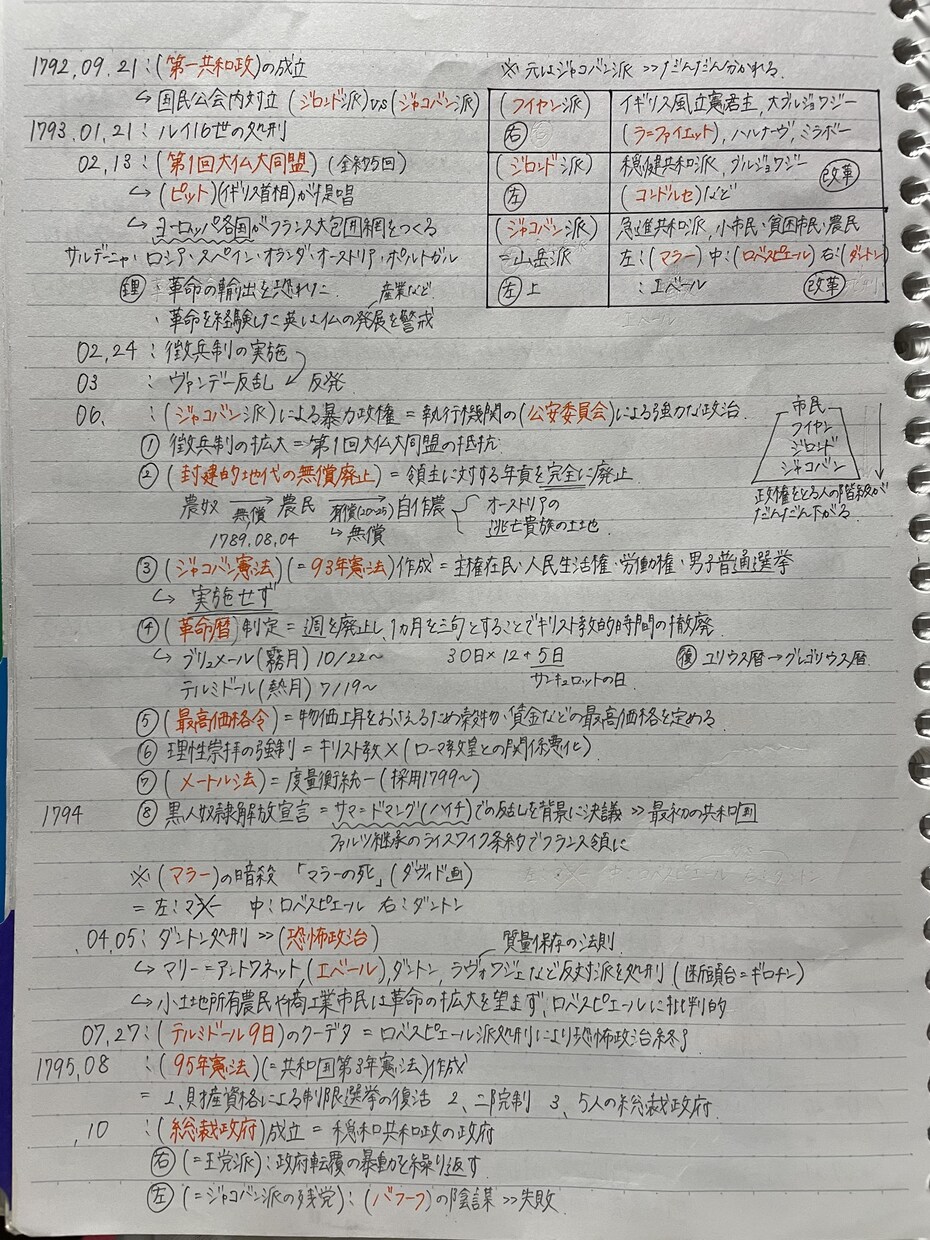 1792.09.21:(第一共和政)の成立
↳国民公会内対立 (ジロンド派)vs(ジャコバン派)
1793.01.21:ルイ16世の処刑
02.13:(第1回大仏大同盟)(全約5回)
↳(ピット)(イギリス首相)が提唱
↳ヨーロッパ各国がフランス大包囲網をつくる
サルデーニャ・ロシア・スペイン・オランダ・オーストリア・ポルトガル
理 ・革命の輸出を恐れた
産業など
・革命を経験した英は仏の発展を警戒
※元はジャコバン派>>だんだん分かれる
(フイヤン派) 右
イギリス風立憲君主,大ブルジョワジー
(ラ=ファイエット),バルナーヴ,ミラボー
(ジロンド派) 左
穏健共和派,ブルジョワジー 改革
(コンドルセ)など
(ジャコバン派) =山岳派 左上
急進共和派,小市民・貧困市民・農民
左:(マラー) 中:(ロベスピエール) 右:(ダントン)
:エベール 改革
02.24:徴兵制の実施
03:ヴァンデー反乱↙反発
06.:(ジャコバン派)による暴力政権=執行機関の(公安委員会)による強力な政治
市民
フイヤン
ジロンド
ジャコバン
政権をとる人の階級が
だんだん下がる
①徴兵制の拡大=第1回大仏大同盟の抵抗
②(封建的地代の無償廃止)=領主に対する年貢を完全に廃止
農奴→農民→自作農{オーストリアの
無償 有償(20~25) 逃亡貴族の土地
1789.08.04 ↳無償
③(ジャコバン憲法)(=93年憲法)作成=主権在民・人民生活権・労働権・男子普通選挙
↳実施せず
④(革命暦)制定=週を廃止し、1カ月を三旬とすることでキリスト教的時間の撤廃
↳ブリュメール(霧月)10/22~ 30日×12+5日 後 ユリウス暦→グレゴリウス暦
テルミドール(熱月)7/19~ サンキュロットの日
⑤(最高価格令)=物価上昇をおさえるため穀物・賃金などの最高価格を定める
⑥理性崇拝の強制=キリスト教×(ローマ教皇との関係悪化)
⑦(メートル法)=度量衡統一(採用1799~)
1794 ⑧黒人奴隷解放宣言=サン=ドマング(ハイチ)での反乱を背景に決議>>最初の共和国
ファルツ継承のライスワイク条約でフランス領に
※(マラー)の暗殺 「マラーの死」(ダヴィド画)
=左:マラー 中:ロベスピエール 右:ダントン
.04.05:ダントン処刑>>(恐怖政治)
質量保存の法則
↳マリー=アントワネット,(エベール),ダントン,ラヴォワジェなど反対派を処刑(断頭台=ギロチン)
↳小土地所有農民や商工業市民は革命の拡大を望まず、ロベスピエールに批判的
07.27:(テルミドール9日)のクーデタ=ロベスピエール派処刑により恐怖政治終了
1795.08:(95年憲法)(=共和国第3年憲法)作成
=1、財産資格による制限選挙の復活 2、二院制 3、5人の総裁政府
.10:(総裁政府)成立=穏和共和政の政府
右(=王党派):政府転覆の暴動を繰り返す
左(=ジャコバン派の残党):(バブーフ)の陰謀>>失敗